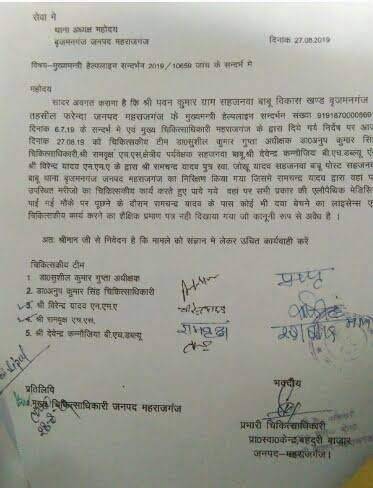 सेवा मे
थाना अध्यक्ष महोदय
बृजमनगंज जनपद महराजगंज
दिनांक 27.08.2019
विषय–मुख्यमन्त्री हेल्पलाइन सन्दर्भन 2019/10659 जाच के सन्दर्भ मे
महोदय
सादर अवगत कराना है कि श्री पवन कुमार ग्राम सहजनवा बाबू विकास खण्ड बृजमनगंज
तहसील फरेन्दा जनपद महराजगंज के मुख्यमन्त्री हेल्पलाइन सन्दर्भन संख्या 9191870000669
दिनांक 6.7.19 के सन्दर्भ में एवं मुख्य चिकित्साधिकारी महराजगंज के द्वारा दिये गये निर्देष पर आज
दिनांक 27.08.19 को चिकित्सक टीम डा0सुशील कुमार गुप्ता अधीक्षक डा0अनुप कुमार
चिकित्साधिकारी,श्री रामवृक्ष एच.एस,क्षेत्रीय पर्यवेक्षक सहजनवा बाबू,श्री देवेन्द्र कन्नौजिया बी.एच.डब्ल्यू
श्री विरेन्द्र यादव एन.एम.ए के द्वारा श्री रामचन्द्र यादव पुत्र स्व0 जोखू यादव सहजनवा बाबू पोस्ट सहजनवा
बाबू थाना बृजमनगंज जनपद महराजगंज का निरिक्षण किया गया जिसमे रामचन्द्र यादव द्वारा वहां पर
उपस्थित मरीजो का चिकित्सकीय कार्य करते हुए पाये गये वहां पर सभी प्रकार की एलौपैथिक मेडिसिन
पाई गई मौके पर पूछने के दौरान रामचन्द्र यादव के पास कोई भी दवा बेचने का लाइसेन्स
चिकित्सकीय कार्य करने का शैक्षिक प्रमाण पत्र नही दिखाया गया जो कानूनी रूप से अवैध है ।
अतः श्रीमान जी से निवेदन है कि मामले को संज्ञान मे लेकर उचित कार्यवाही करें
चिकित्सकीय टीम
1. डा0सुशील कुमार गुप्ता अधीक्षक
2. डा0अनुप कुमार सिंह चिकित्साधिकारी
3. श्री विरेन्द्र यादव एन.एम.ए
4. श्री रामवृक्ष एच.एस.
5. श्री देवेन्द्र कन्नौजिया बी.एच.डब्ल्यू
प्रतिलिपि
मुख्य चिकित्साधिकारी जनपद महराजगंज
भवदीय
प्रभारी चिकित्साधिकारी
प्रा0स्वा0केन्द्र,बहदुरी बाजार
जनपद–महराजगंज।